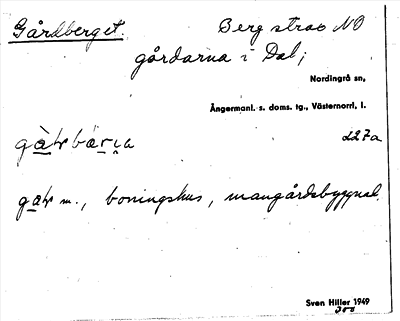 Gårdberget.
Berg strax NO
gårdarna i Dal;
Nordingrå sn,
Ångermanl. s. doms. tg., Västernorrl, l.
227a
m., boningshus, mangårdsbyggnad.
Sven Hiller 1949